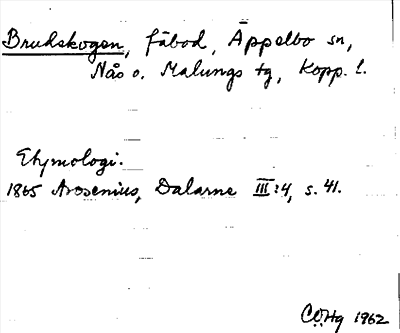 Brudskogen, fäbod, Äppelbo sn,
Nås o. Malungs tg, Kopp. l.
Etymologi.
1865 Arosenius, Dalarne III:4, s. 41.
CÖHg 1962